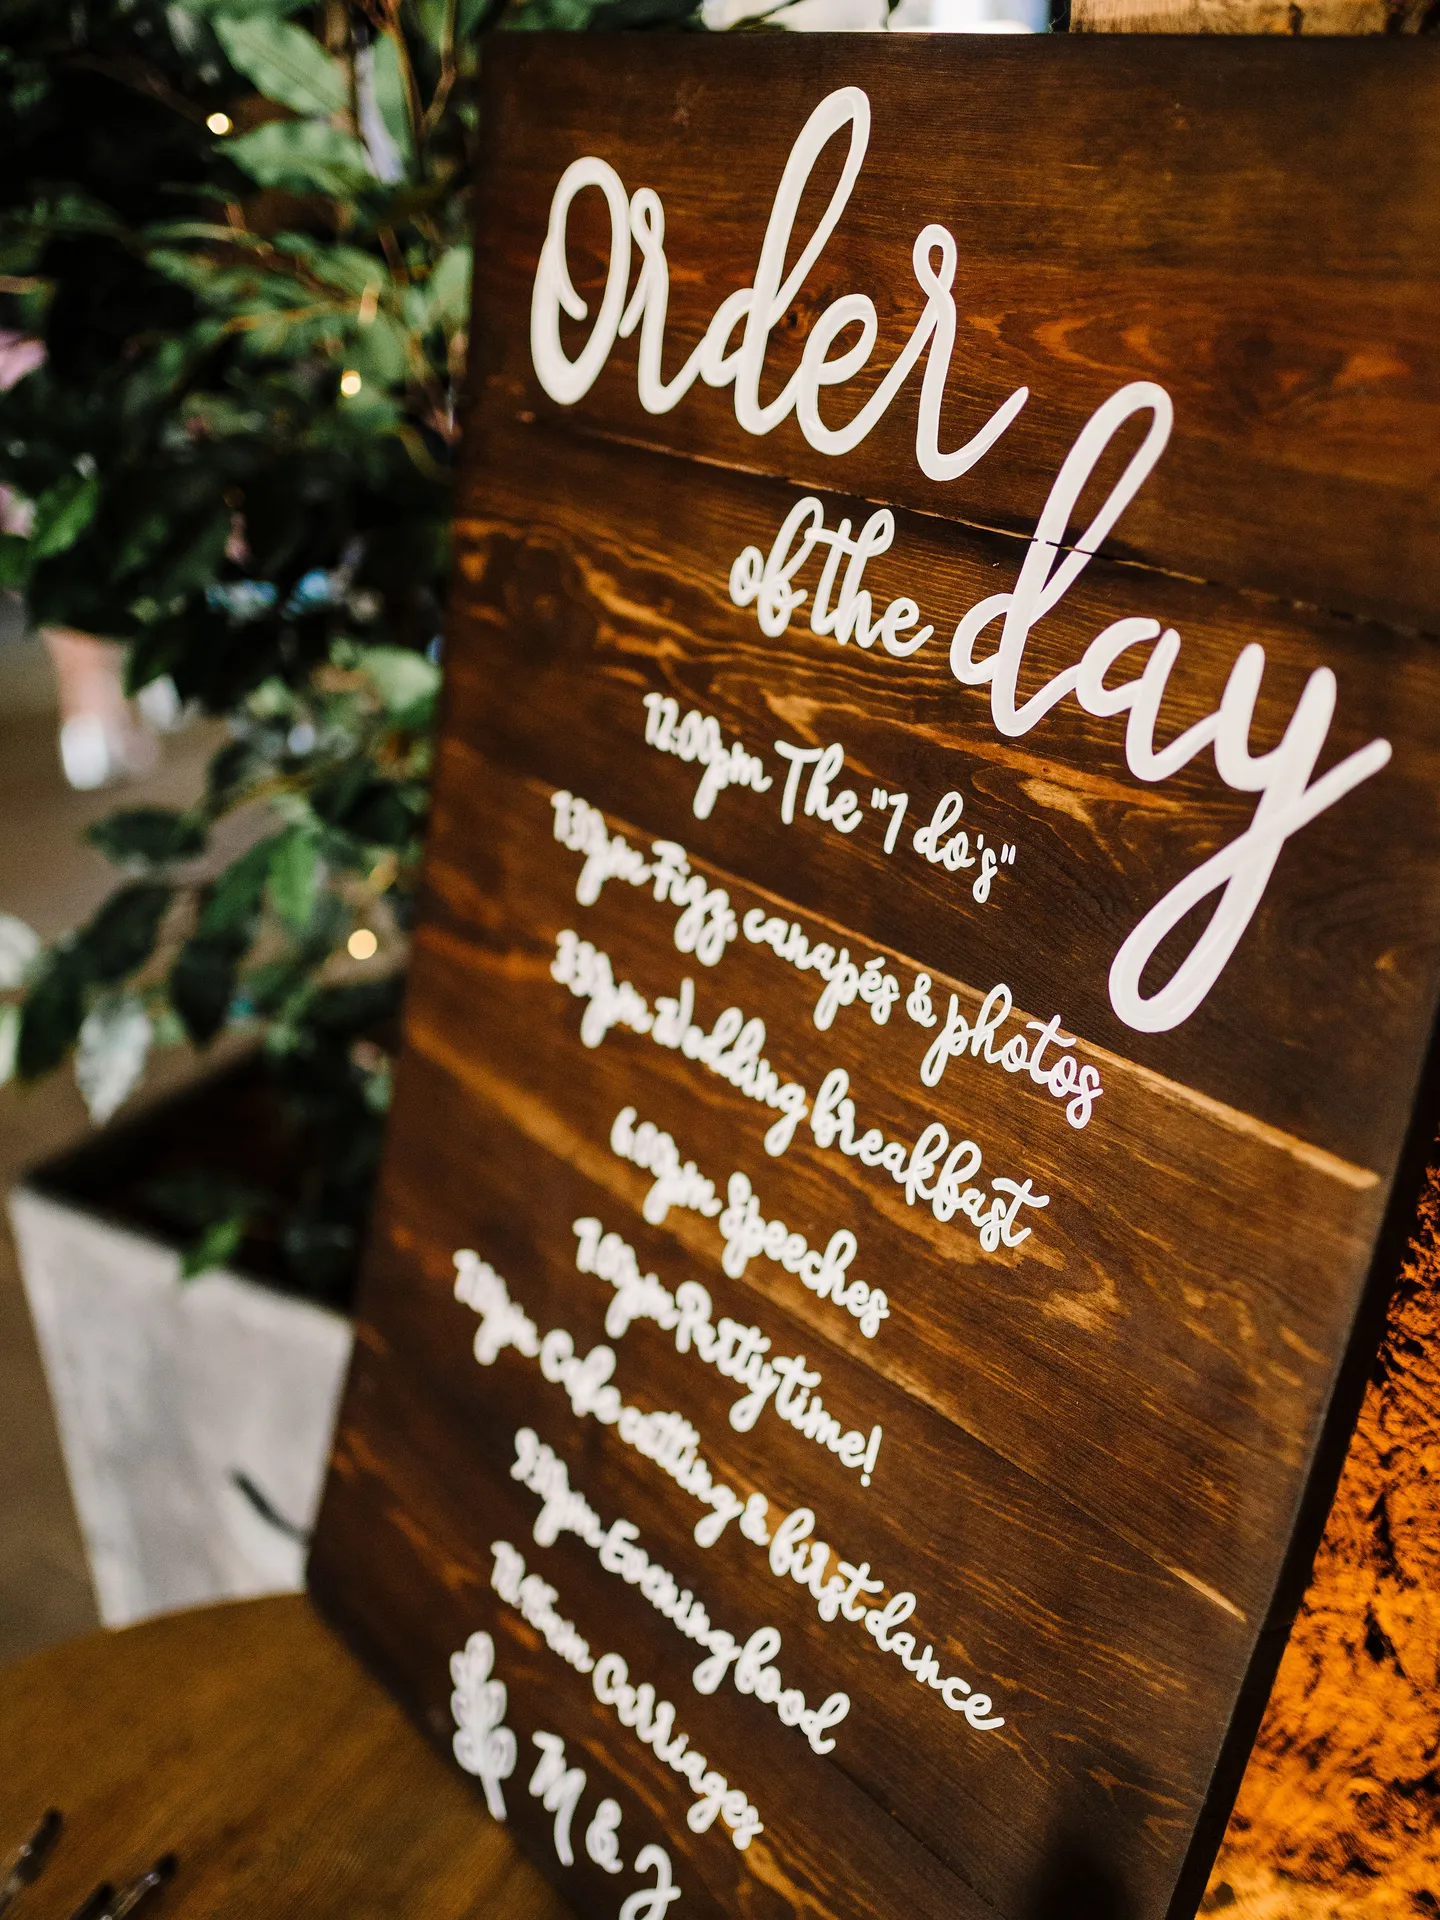 Order
of the day
12:00pm The "I do's"
1:30pm Fizz, canapés & photos
3:30pm Wedding breakfast
6:00pm Speeches
7:00pm Party time!
Cake cutting & first dance
9:30pm Evening food
12:45am Carriages
M & J